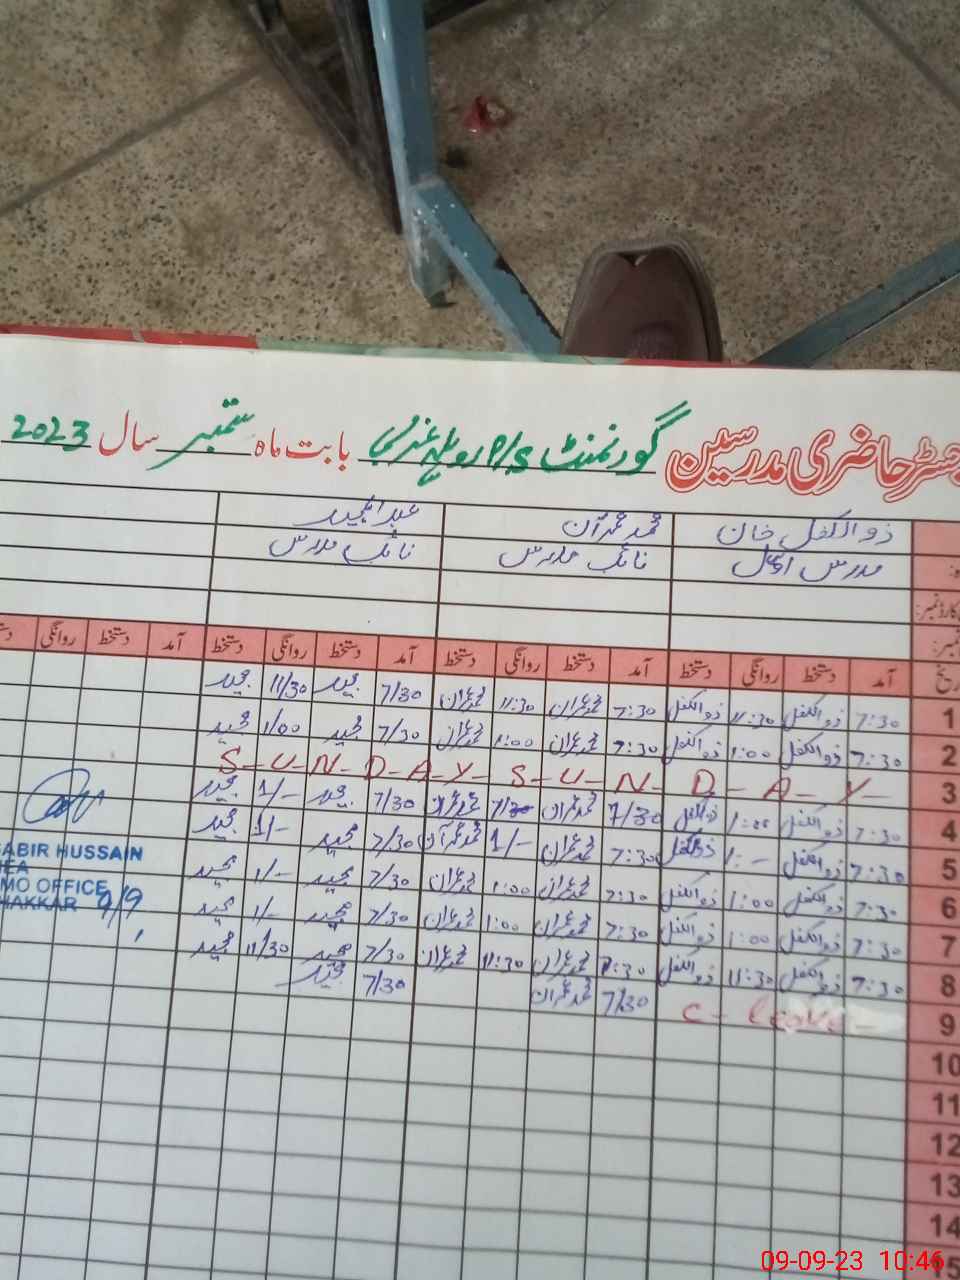 رجسٹر حاضری مدرسین گورنمنٹ P/S بابت ماہ ستمبر سال 2023
ذوالکفل خان محمد عمران عبدالمجید
مدرس نائب مدرس نائب مدرس
تاریخ آمد دستخط روانگی دستخط آمد دستخط روانگی دستخط آمد دستخط روانگی دستخط آمد دستخط روانگی دستخط
1 7:30 ذوالکفل 11:30 ذوالکفل 7:30 محمد عمران 11:30 محمد عمران 7/30 مجید 11/30 مجید
2 7:30 ذوالکفل 1:00 ذوالکفل 7:30 محمد عمران 1:00 محمد عمران 7/30 مجید 1/00 مجید
3 S-U-N-D-A-Y- S-U-N-D-A-Y-
4 7:30 ذوالکفل 1:00 ذوالکفل 7/30 محمد عمران محمد عمران 7/30 مجید 1/- مجید
5 7:30 ذوالکفل 1:- ذوالکفل 7:30 محمد عمران 1/- محمد عمران 7/30 مجید 1/- مجید
6 7:30 ذوالکفل 1:00 ذوالکفل 7:30 محمد عمران 1:00 محمد عمران 7/30 مجید 1/- مجید
7 7:30 ذوالکفل 1:00 ذوالکفل 7:30 محمد عمران 1:00 محمد عمران 7/30 مجید 1/- مجید
8 7:30 ذوالکفل 11:30 ذوالکفل 7:30 محمد عمران 11:30 محمد عمران 7/30 مجید 11/30 مجید
9 C-leave- 7/30 محمد عمران 7/30 مجید
10
11
12
13
14
15
SABIR HUSSAIN
MEA
MO OFFICE
BHAKKAR 9/9
09-09-23 10:46